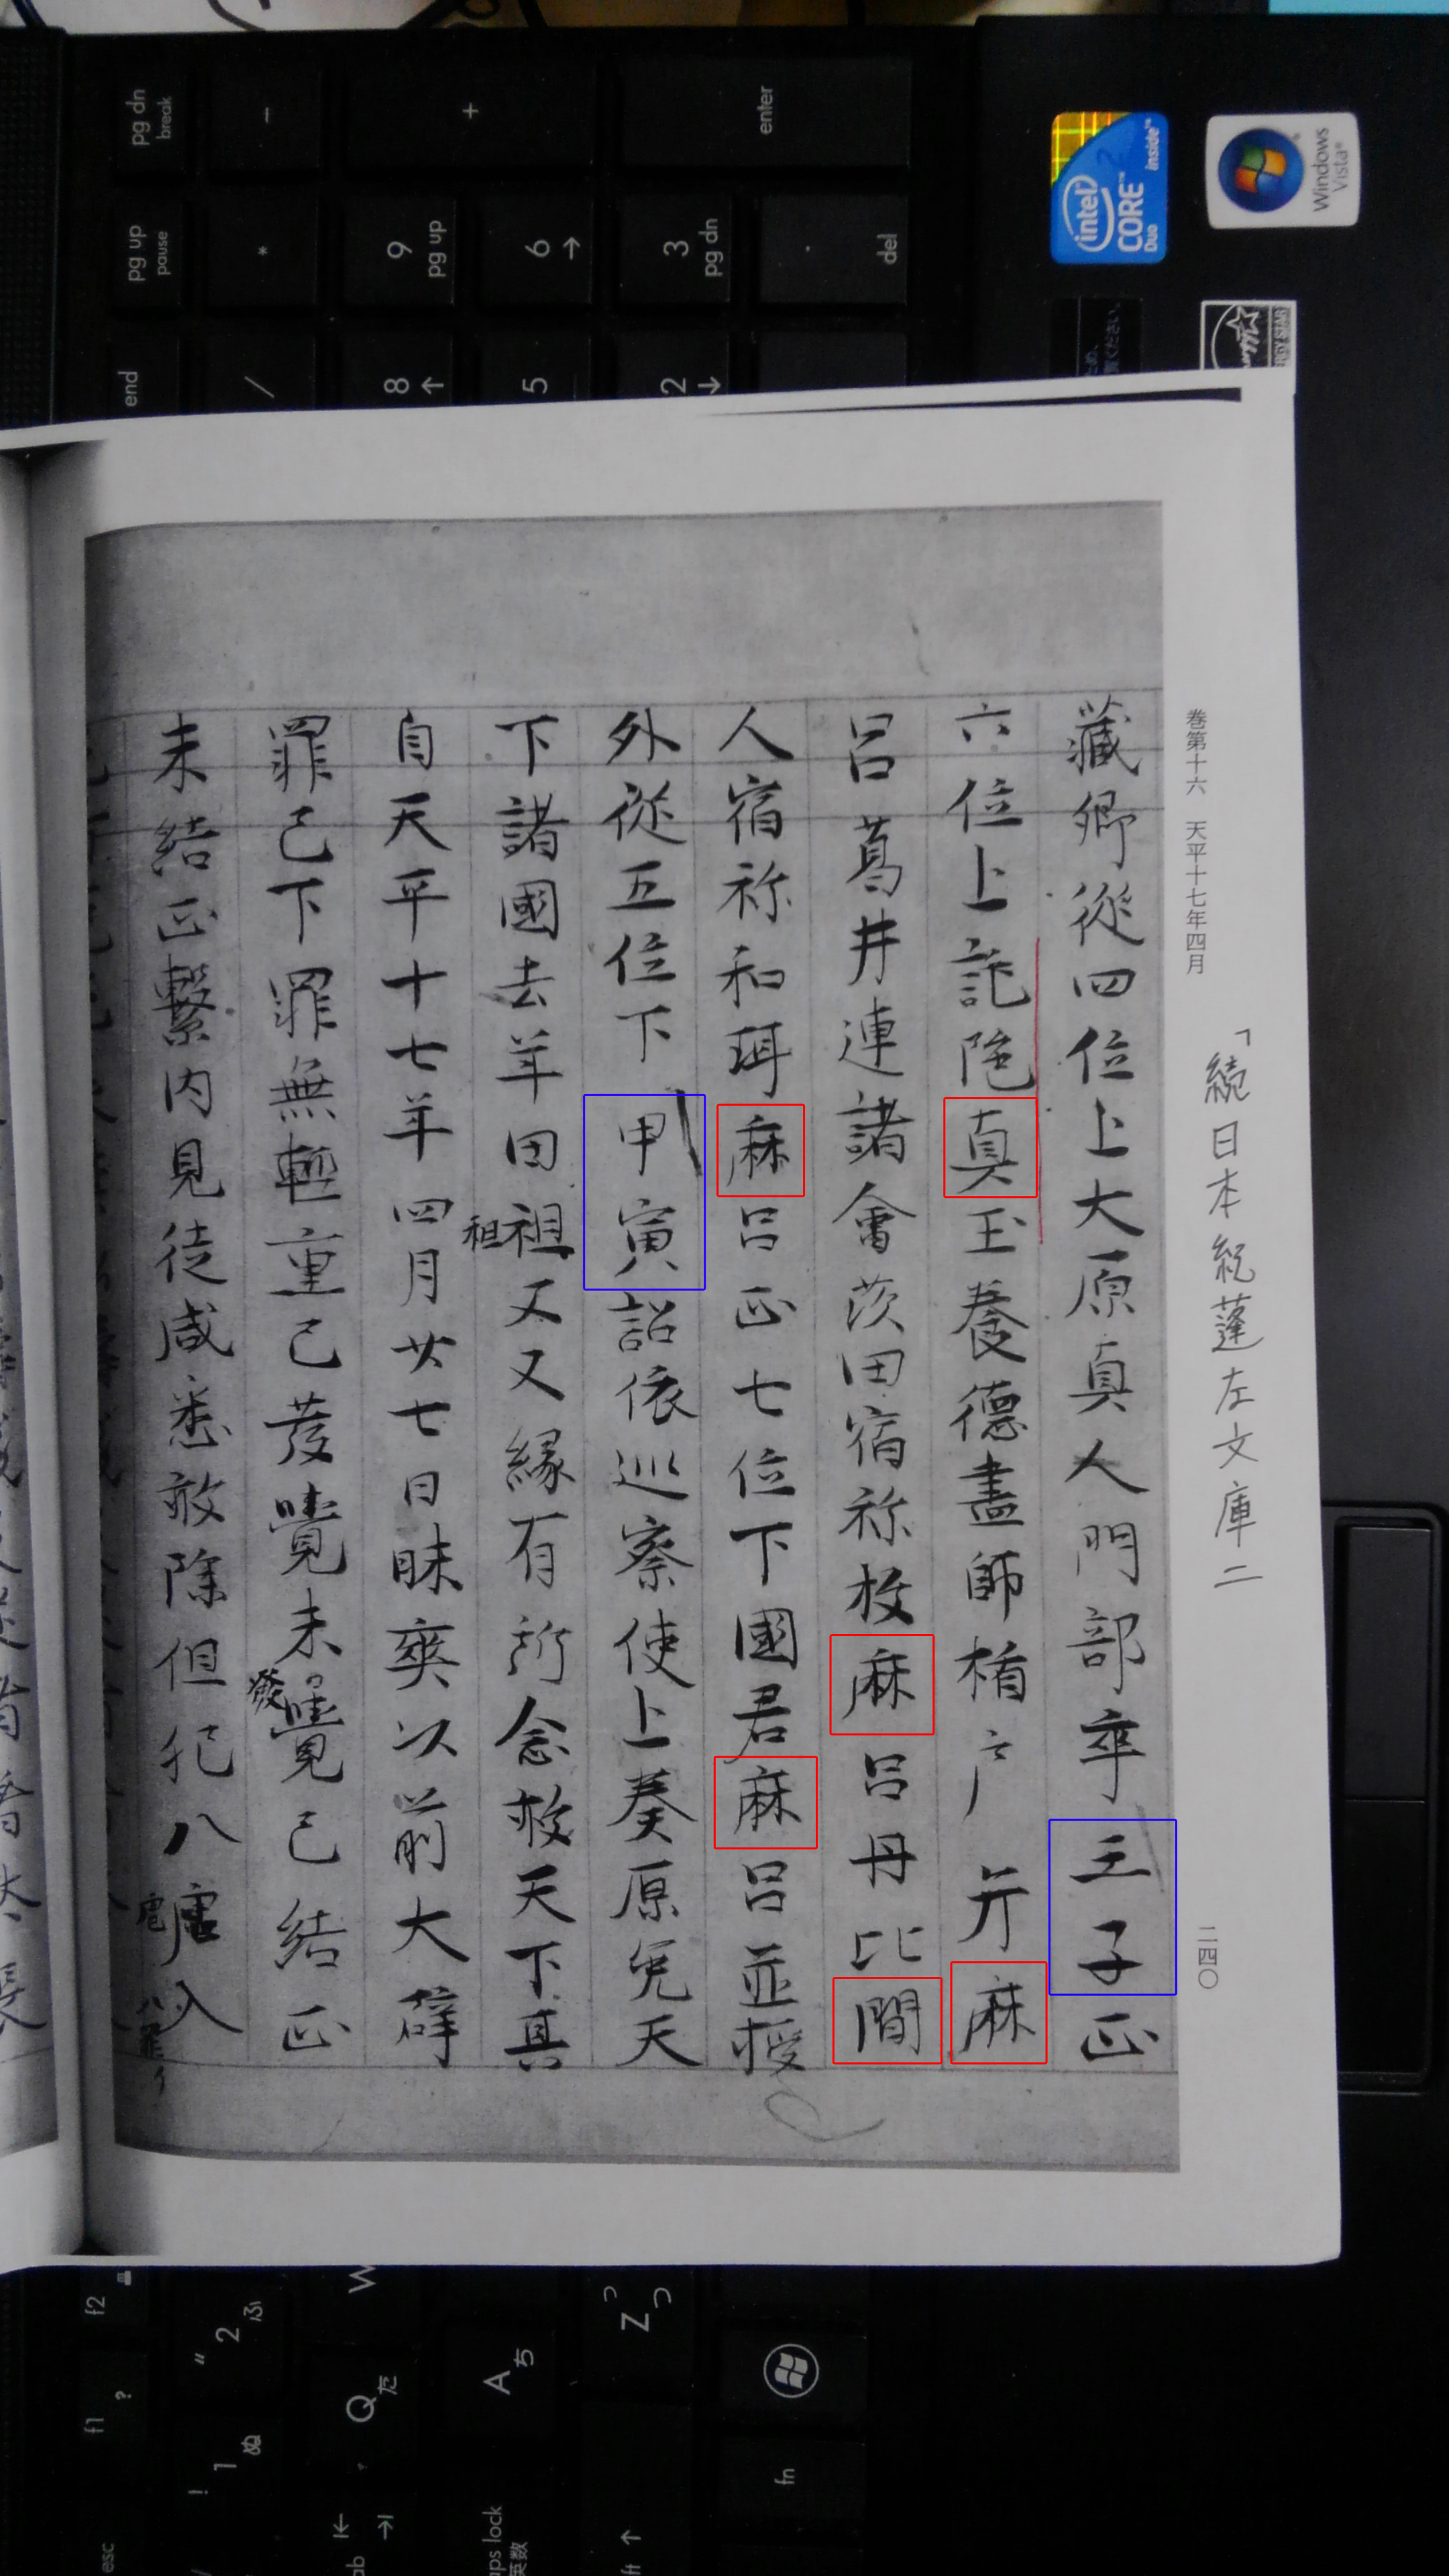 「続日本紀蓬左文庫二
巻第十六 天平十七年四月
二四〇
藏卿從四位上大原真人門部卒壬子正
六位上詑陁真玉養徳畫師楯戸弁麻
呂葛井連諸會茨田宿祢枚麻呂丹比間
人宿祢和珥麻呂正七位下國君麻呂並授
外從五位下甲寅詔依巡察使上奏原免天
下諸國去年田租又又縁有所念救天下其
租
自天平十七年四月廿七日昧爽以前大辟
罪已下罪無輕重已發覺未覺已結正
發
未結正繋囚見徒咸悉赦除但犯八虐入
虐
pg dn
break
-
+
enter
pg up
pause
*
9
pg up
6
→
3
pg dn
.
del
end
/
8
↑
5
2
↓
intel
CORE™ 2
Duo
inside™
Windows
Vista®
f2
f1
?
"
2
ふ
!
1
ぬ
W
Q
た
A
ち
Z
つ
っ
caps lock
英数
fn
esc